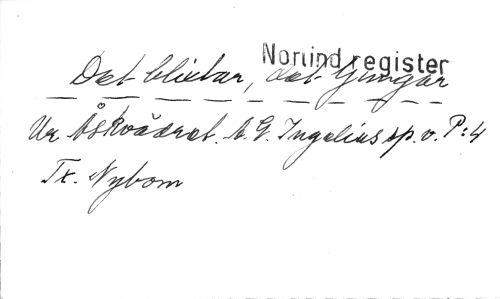 Norlind register
Det blixtrar, det ljungar
Ur Åskvädret. A. G. Ingelius sp. v. P:4
Tx. Nybom